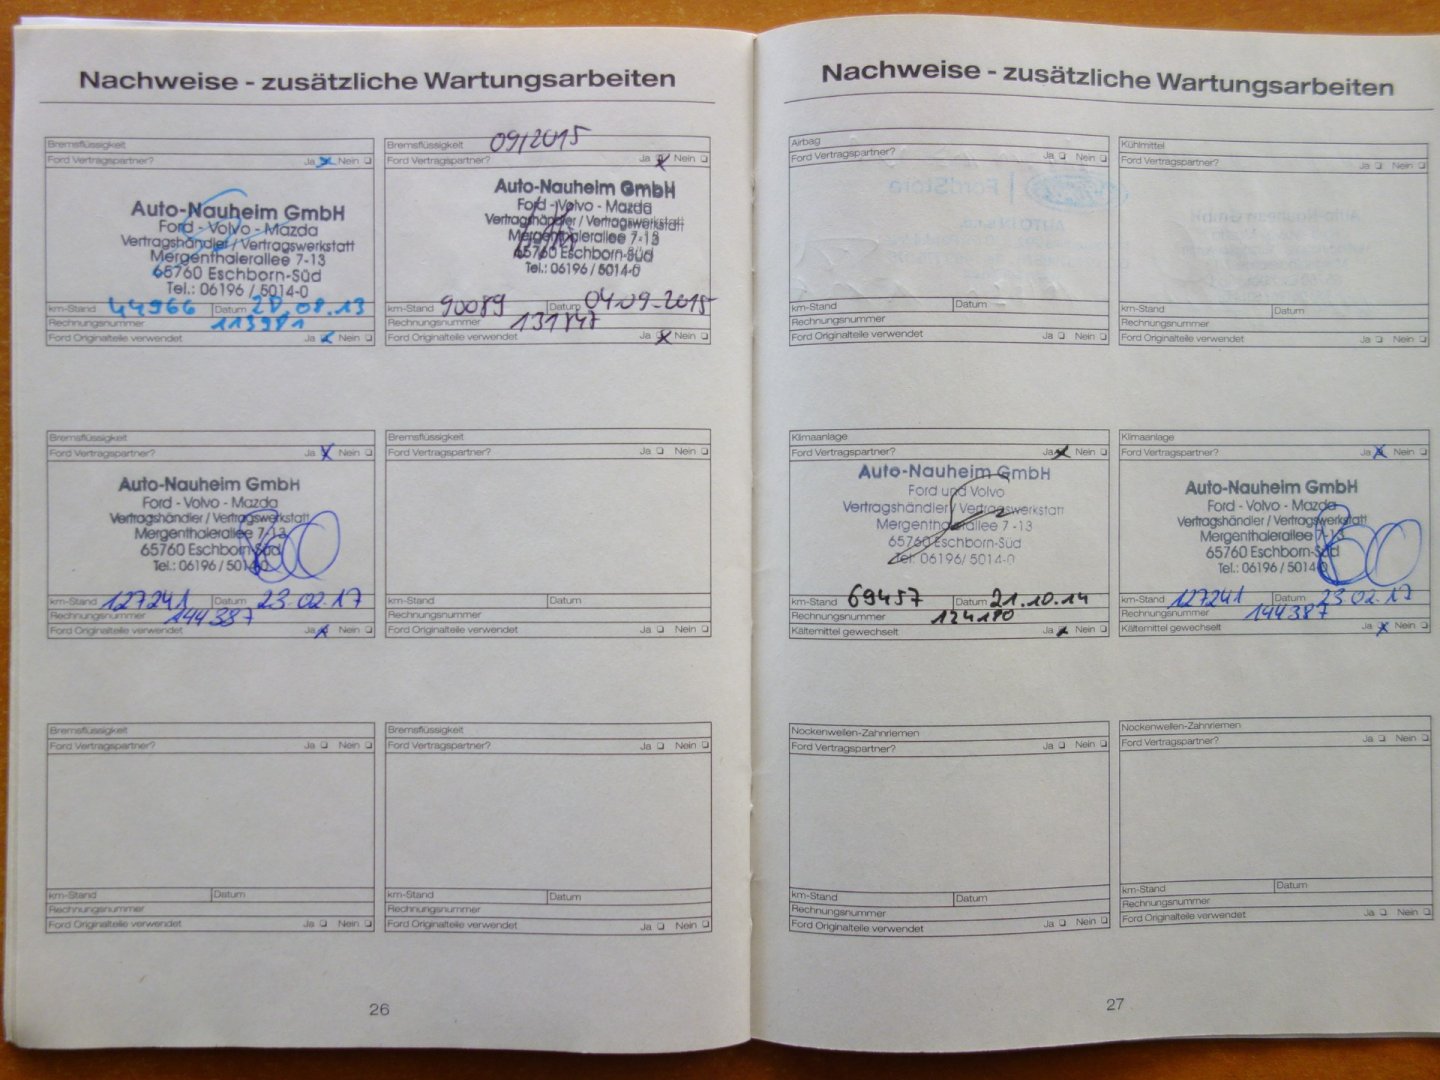 Nachweise - zusätzliche Wartungsarbeiten
Bremsflüssigkeit
Ford Vertragspartner? Ja Nein
Auto-Nauheim GmbH
Ford - Volvo - Mazda
Vertragshändler / Vertragswerkstatt
Mergenthalerallee 7-13
65760 Eschborn-Süd
Tel.: 06196 / 5014-0
km-Stand 44966 Datum 28.08.13
Rechnungsnummer 113981
Ford Originalteile verwendet Ja Nein
Bremsflüssigkeit 09/2015
Ford Vertragspartner? Ja Nein
Auto-Nauheim GmbH
Ford - Volvo - Mazda
Vertragshändler / Vertragswerkstatt
Mergenthalerallee 7-13
65760 Eschborn-Süd
Tel.: 06196 / 5014-0
km-Stand 90089 Datum 04.09.2015
Rechnungsnummer 131847
Ford Originalteile verwendet Ja Nein
Bremsflüssigkeit
Ford Vertragspartner? Ja Nein
Auto-Nauheim GmbH
Ford - Volvo - Mazda
Vertragshändler / Vertragswerkstatt
Mergenthalerallee 7-13
65760 Eschborn-Süd
Tel.: 06196 / 5014-0
km-Stand 127241 Datum 23.02.17
Rechnungsnummer 144387
Ford Originalteile verwendet Ja Nein
Bremsflüssigkeit
Ford Vertragspartner? Ja Nein
km-Stand Datum
Rechnungsnummer
Ford Originalteile verwendet Ja Nein
Bremsflüssigkeit
Ford Vertragspartner? Ja Nein
km-Stand Datum
Rechnungsnummer
Ford Originalteile verwendet Ja Nein
Bremsflüssigkeit
Ford Vertragspartner? Ja Nein
km-Stand Datum
Rechnungsnummer
Ford Originalteile verwendet Ja Nein
26
Nachweise - zusätzliche Wartungsarbeiten
Airbag
Ford Vertragspartner? Ja Nein
km-Stand Datum
Rechnungsnummer
Ford Originalteile verwendet Ja Nein
Kühlmittel
Ford Vertragspartner? Ja Nein
km-Stand Datum
Rechnungsnummer
Ford Originalteile verwendet Ja Nein
Klimaanlage
Ford Vertragspartner? Ja Nein
Auto-Nauheim GmbH
Ford und Volvo
Vertragshändler / Vertragswerkstatt
Mergenthalerallee 7-13
65760 Eschborn-Süd
Tel: 06196/ 5014-0
km-Stand 69457 Datum 21.10.14
Rechnungsnummer 124180
Kältemittel gewechselt Ja Nein
Klimaanlage
Ford Vertragspartner? Ja Nein
Auto-Nauheim GmbH
Ford - Volvo - Mazda
Vertragshändler / Vertragswerkstatt
Mergenthalerallee 7-13
65760 Eschborn-Süd
Tel.: 06196 / 5014-0
km-Stand 127241 Datum 23.02.17
Rechnungsnummer 144387
Kältemittel gewechselt Ja Nein
Nockenwellen-Zahnriemen
Ford Vertragspartner? Ja Nein
km-Stand Datum
Rechnungsnummer
Ford Originalteile verwendet Ja Nein
Nockenwellen-Zahnriemen
Ford Vertragspartner? Ja Nein
km-Stand Datum
Rechnungsnummer
Ford Originalteile verwendet Ja Nein
27